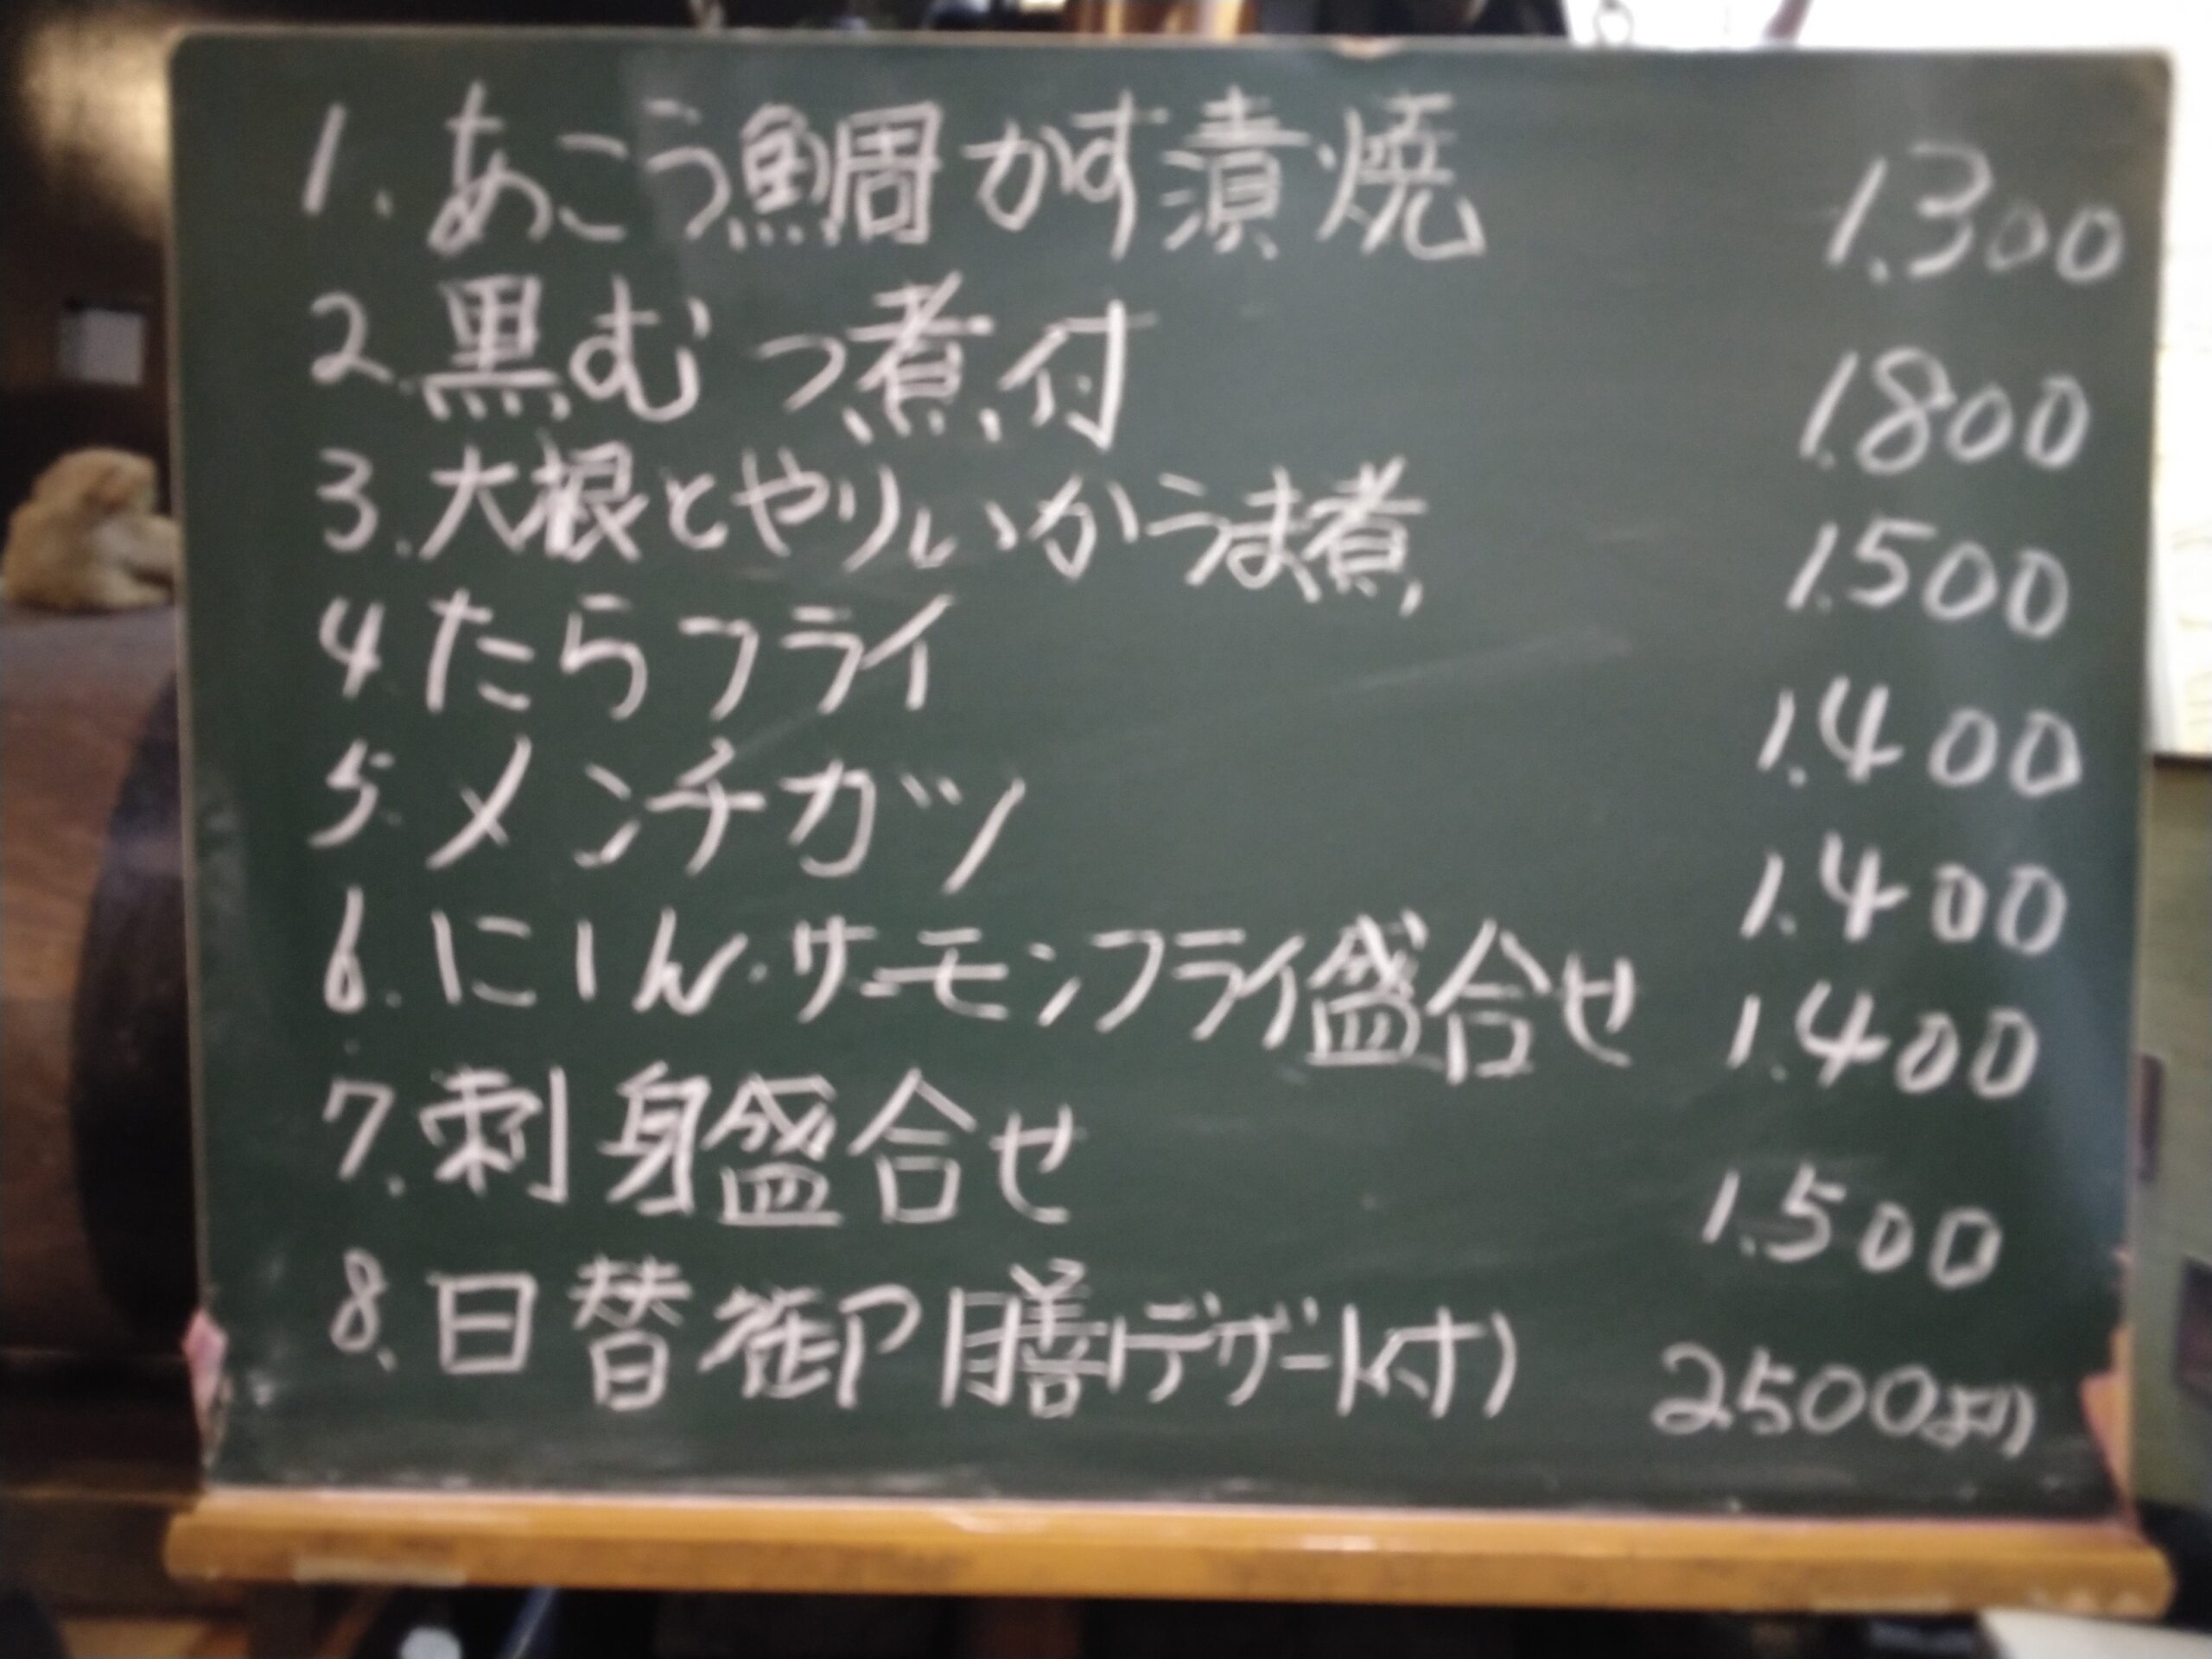 1. あこう鯛かす漬焼 1.300
2. 黒むつ煮付 1.800
3. 大根とやりいかうま煮 1.500
4. たらフライ 1.400
5. メンチカツ 1.400
6. にしん・サーモンフライ盛合せ 1.400
7. 刺身盛合せ 1.500
8. 日替御膳(デザート付) 2.500より